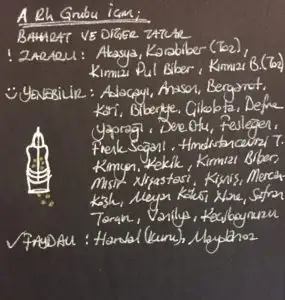 A Rh Grubu için;
BAHARAT VE DİĞER TATLAR
! ZARARLI : Akasya, Karabiber (Toz),
Kırmızı Pul Biber, Kırmızı B.(Toz)
YENEBİLİR : Adaçayı, Anason, Bergamot,
Köri, Biberiye, Çikolata, Defne
Yaprağı, Dere Otu, Fesleğen,
Frenk Soğanı, Hindistancevizi T.
Kimyon, Kekik, Kırmızı Biber,
Mısır Nişastası, Kişniş, Mercan
Köşk, Meyan Kökü, Nane, Safran
Tarçın, Vanilya, Keçiboynuzu
✓ FAYDALI : Hardal (kuru), Maydanoz